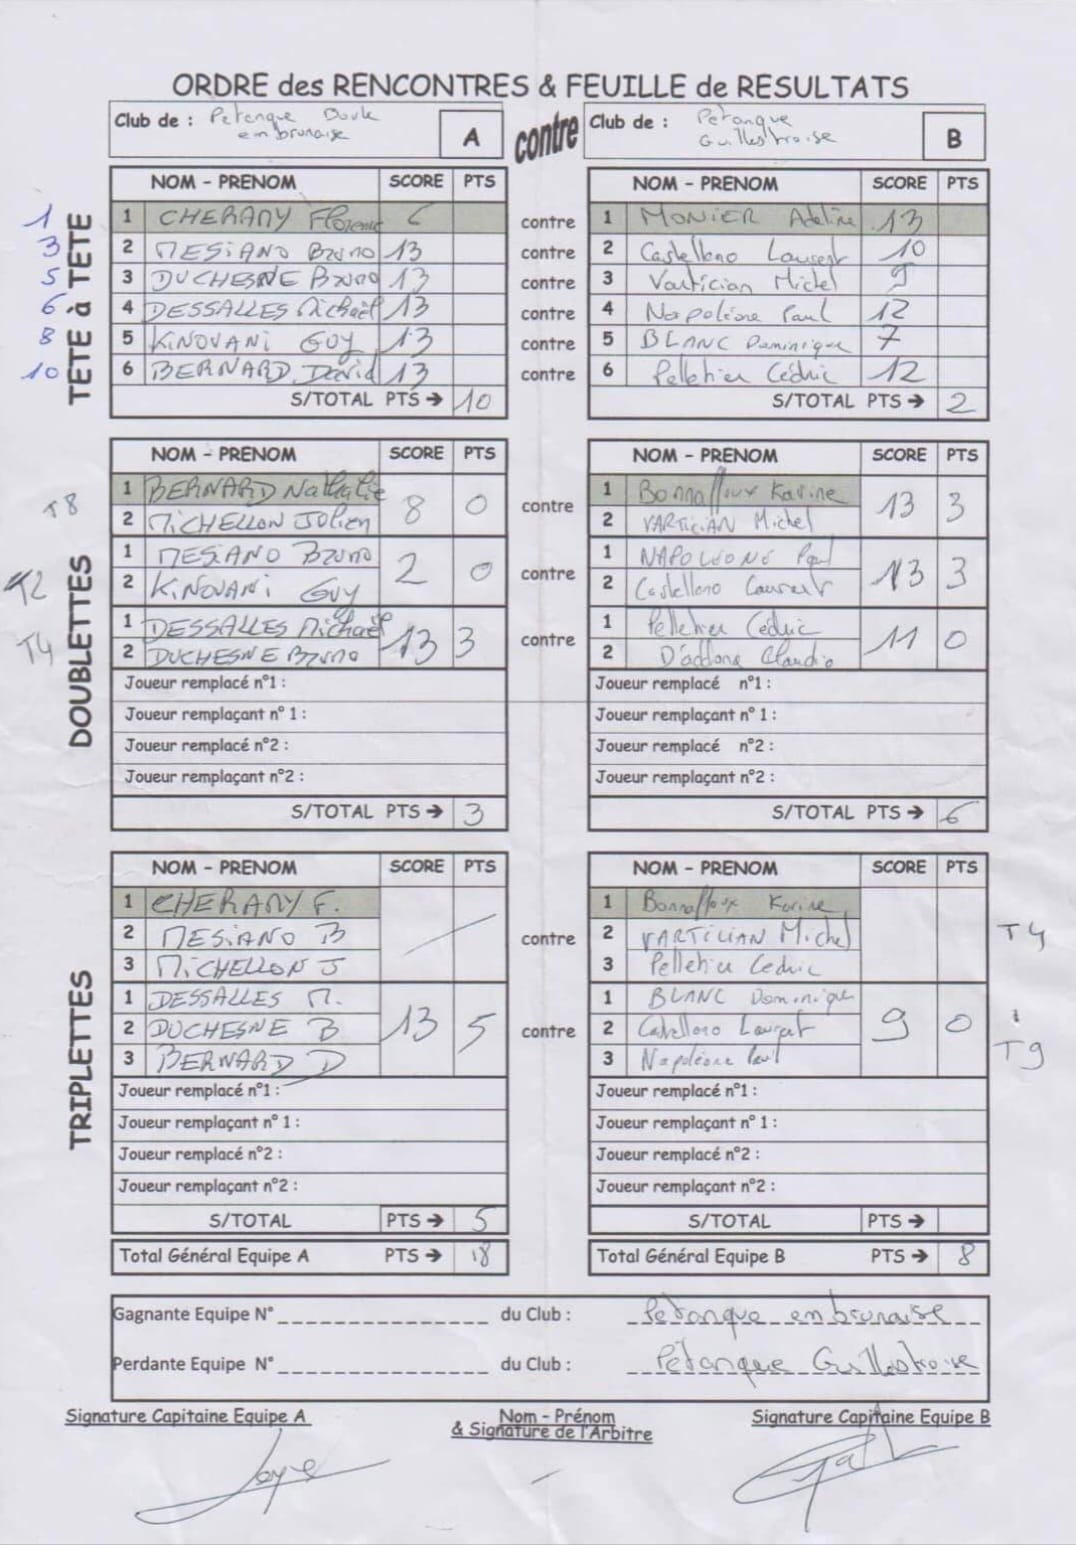 ORDRE des RENCONTRES & FEUILLE de RESULTATS
Club de : Petanque Boule embrunaise A contre Club de : Pétanque Guillestroise B
TETE à TETE
NOM - PRENOM SCORE PTS NOM - PRENOM SCORE PTS
1 1 CHERANY Florence 6 contre 1 MONIER Adeline 13
3 2 MESiANO Bruno 13 contre 2 Castellano Laurent 10
5 3 DUCHESNE Bruno 13 contre 3 Vartician Michel 9
6 4 DESSALLES Michaël 13 contre 4 Napoléone Paul 12
8 5 KiNOVANi GUY 13 contre 5 BLANC Dominique 7
10 6 BERNARD David 13 contre 6 Pelletier Cédric 12
S/TOTAL PTS → 10 S/TOTAL PTS → 2
DOUBLETTES
NOM - PRENOM SCORE PTS NOM - PRENOM SCORE PTS
T8 1 BERNARD Nathalie 8 0 contre 1 Bonnaffoux Karine 13 3
2 MiCHELLON JULien 2 VARTiCiAN Michel
T2 1 MESiANO BRUNO 2 0 contre 1 NAPOLEONE Paul 13 3
2 KiNOVANi GUY 2 Castellano Laurent
T4 1 DESSALLES Michaël 13 3 contre 1 Pelletier Cédric 11 0
2 DUCHESNE BRUNO 2 D'addona Claudio
Joueur remplacé n°1 : Joueur remplacé n°1 :
Joueur remplaçant n° 1 : Joueur remplaçant n° 1 :
Joueur remplacé n°2 : Joueur remplacé n°2 :
Joueur remplaçant n°2 : Joueur remplaçant n°2 :
S/TOTAL PTS → 3 S/TOTAL PTS → 6
TRIPLETTES
NOM - PRENOM SCORE PTS NOM - PRENOM SCORE PTS
1 CHERANY F. 1 Bonnaffoux Karine
2 MESiANO B contre 2 VARTiCiAN Michel T4
3 MiCHELLON J 3 Pelletier Cedric
1 DESSALLES M. 1 BLANC Dominique
2 DUCHESNE B 13 5 contre 2 Castellano Laurent 9 0
3 BERNARD D 3 Napoléone Paul T9
Joueur remplacé n°1 : Joueur remplacé n°1 :
Joueur remplaçant n° 1 : Joueur remplaçant n° 1 :
Joueur remplacé n°2 : Joueur remplacé n°2 :
Joueur remplaçant n°2 : Joueur remplaçant n°2 :
S/TOTAL PTS → 5 S/TOTAL PTS →
Total Général Equipe A PTS → 18 Total Général Equipe B PTS → 8
Gagnante Equipe N° du Club : Pétanque embrunaise
Perdante Equipe N° du Club : Pétanque Guillestroise
Signature Capitaine Equipe A Nom - Prénom & Signature de l'Arbitre Signature Capitaine Equipe B